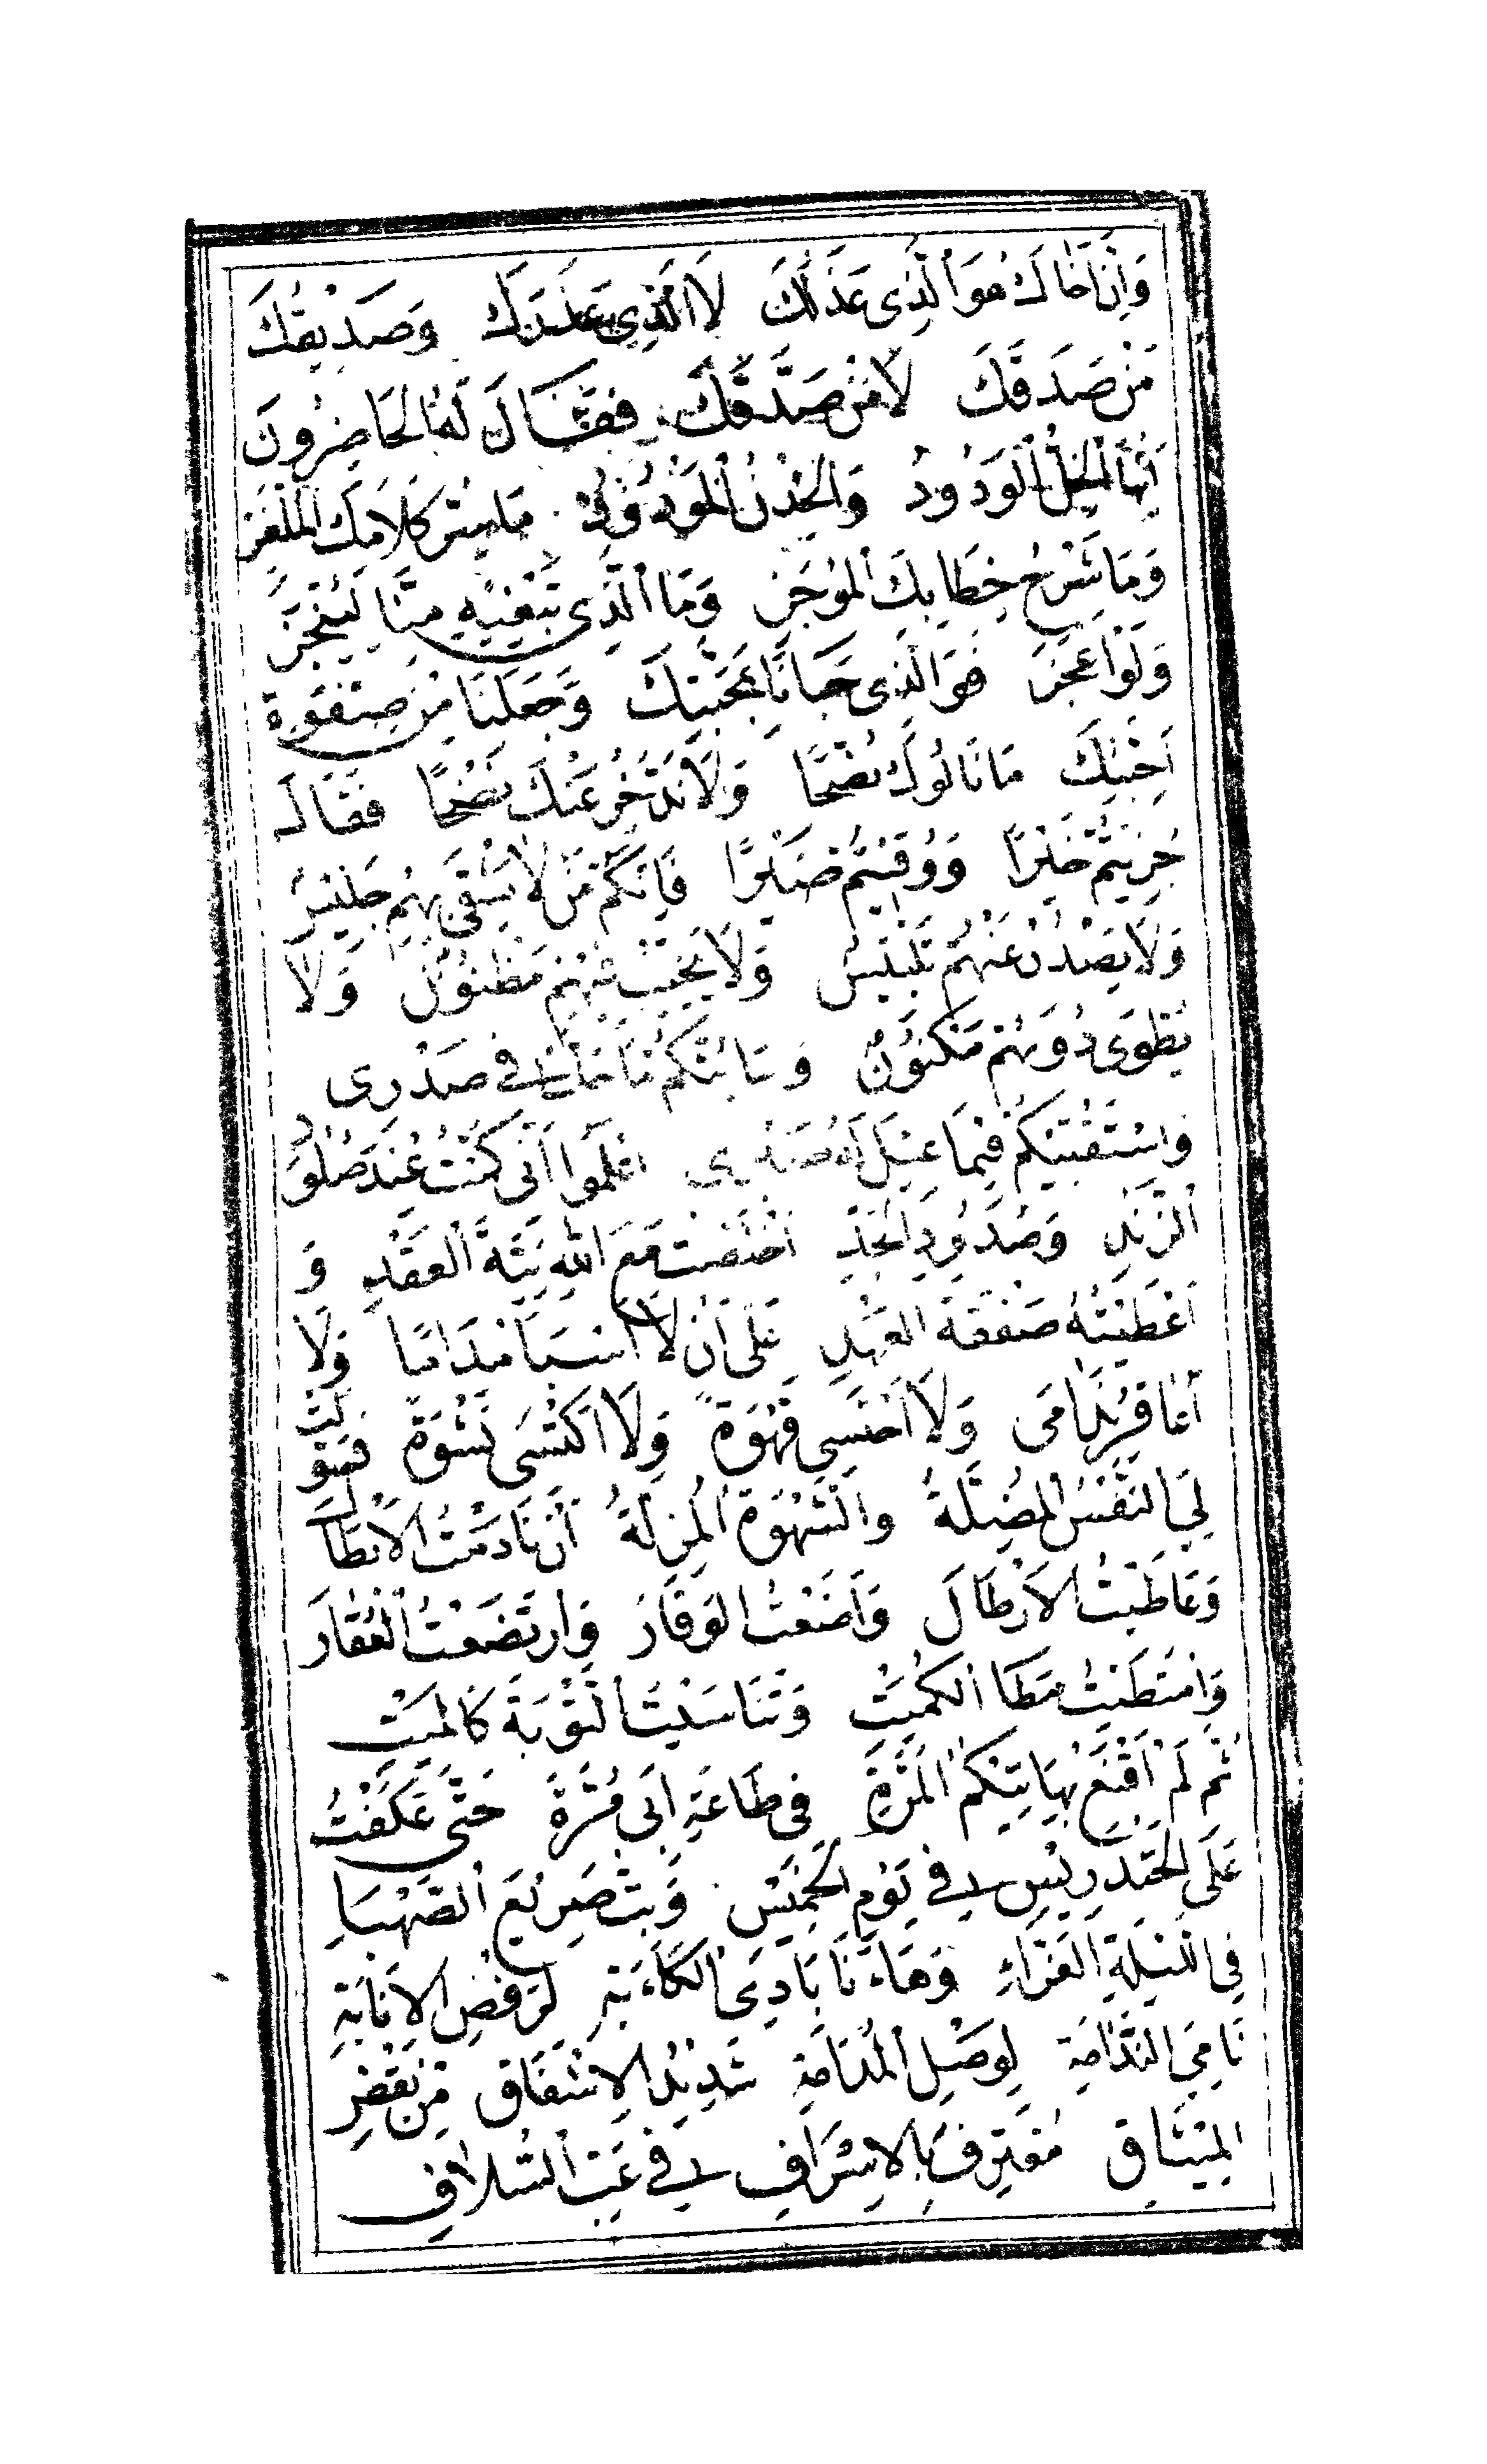 وَاِنَّ اَخَاكَ هُوَ الَّذِى عَذَلَكَ لَا الَّذِى عَذَرَكَ وَصَدِيقُكَ
مَنْ صَدَقَكَ لَا مَنْ صَدَّقَكَ فَقَالَ لَهُ الْحَاضِرُونَ
اَيُّهَا الْخِلُّ الْوَدُودُ وَالْخِدْنُ الْمَوْدُودُ مَا سِرُّ كَلَامِكَ الْمُلْغَزِ
وَمَا شَرْحُ خِطَابِكَ الْمُوجَزِ وَمَا الَّذِى تَبْغِيهِ مِنَّا لِيُنْجَزَ
وَلَوْ اَعْجَزَ فَوَ الَّذِى حَبَانَا بِمَحَبَّتِكَ وَجَعَلَنَا مِنْ صَفْوَةِ
اَحِبَّتِكَ مَا نَالُوكَ نُصْحًا وَلَا نَدَّخِرُ عَنْكَ نَضْحًا فَقَالَ
جُزِيتُمْ خَيْرًا وَوُقِيتُمْ ضَيْرًا فَاِنَّكُمْ مِمَّنْ لَا يَشْقَى بِهِمْ جَلِيسٌ
وَلَا يَصْدُرُ عَنْهُمْ تَلْبِيسٌ وَلَا يُخَيَّبُ فِيهِمْ مَظْنُونٌ وَلَا
يُطْوَى دُونَهُمْ مَكْنُونٌ وَسَاَبُثُّكُمْ مَا حَاكَ فِى صَدْرِى
وَاسْتَفْتِيكُمْ فِيمَا عِيلَ لَهُ صَبْرِى اِعْلَمُوا اَنِّى كُنْتُ عِنْدَ صُلُودِ
الزَّنْدِ وَصُدُودِ الْجَدِّ اَخْلَصْتُ مَعَ اللهِ نِيَّةَ الْعَقْدِ وَ
اَعْطَيْتُهُ صَفْقَةَ الْعَهْدِ عَلَى اَنْ لَا اَسْبَأَ مُدَامًا وَلَا
اُعَاقِرَ نَدَامَى وَلَا اَحْتَسِىَ قَهْوَةً وَلَا اَكْتَسِىَ نَشْوَةً فَسَوَّلَتْ
لِىَ النَّفْسُ الْمُضِلَّةُ وَالشَّهْوَةُ الْمُزِلَّةُ اَنْ نَادَمْتُ الْاَبْطَالَ
وَعَاطَيْتُ الْاَرْطَالَ وَاَضَعْتُ الْوَقَارَ وَارْتَضَعْتُ الْعُقَارَ
وَامْتَطَيْتُ مَطَا الْكُمَيْتِ وَتَنَاسَيْتُ التَّوْبَةَ كَالْمَيْتِ
ثُمَّ لَمْ اَقْنَعْ بِهَاتِيكُمُ الْمَرَّةِ فِى طَاعَةِ اَبِى مُرَّةَ حَتَّى عَكَفْتُ
عَلَى الْخَنْدَرِيسِ فِى يَوْمِ الْخَمِيسِ وَبِتُّ صَرِيعَ الصَّهْبَاءِ
فِى اللَّيْلَةِ الْغَرَّاءِ وَهَا اَنَا بَادِى الْكَآبَةِ لِرَفْضِ الْاِنَابَةِ
نَامِى النَّدَامَةِ لِوَصْلِ الْمُدَامَةِ شَدِيدُ الْاِشْفَاقِ مِنْ نَقْضِ
الْمِيثَاقِ مُعْتَرِفٌ بِالْاِسْرَافِ فِى عَبِّ السُّلَافِ